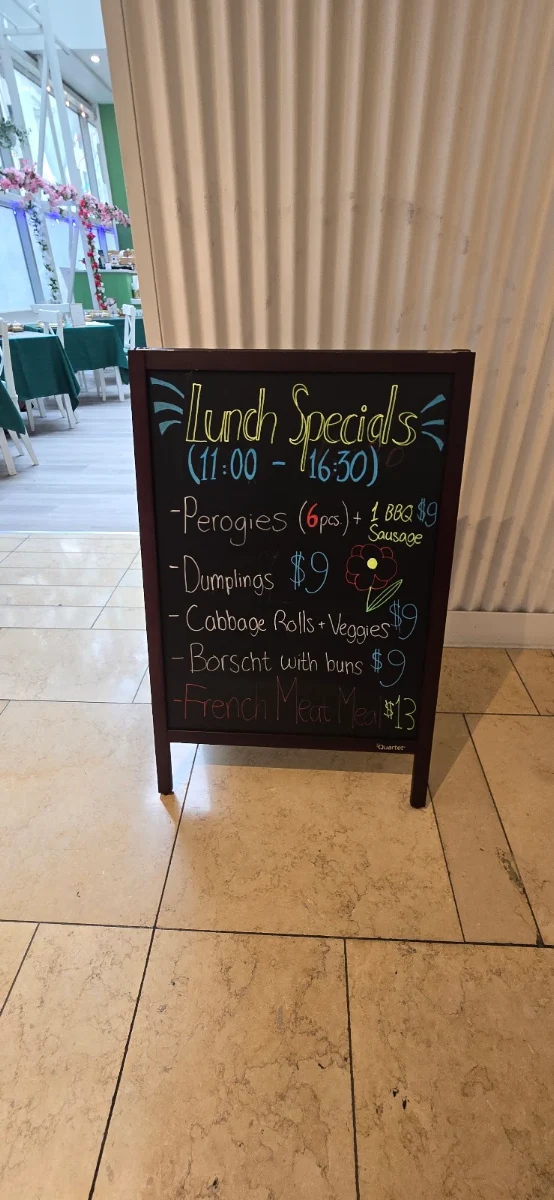 Lunch Specials
(11:00 - 16:30)
-Perogies (6pcs.) + 1 BBQ Sausage $9
-Dumplings $9
- Cabbage Rolls + Veggies $9
- Borscht with buns $9
-French Meat Meal $13
Quartet